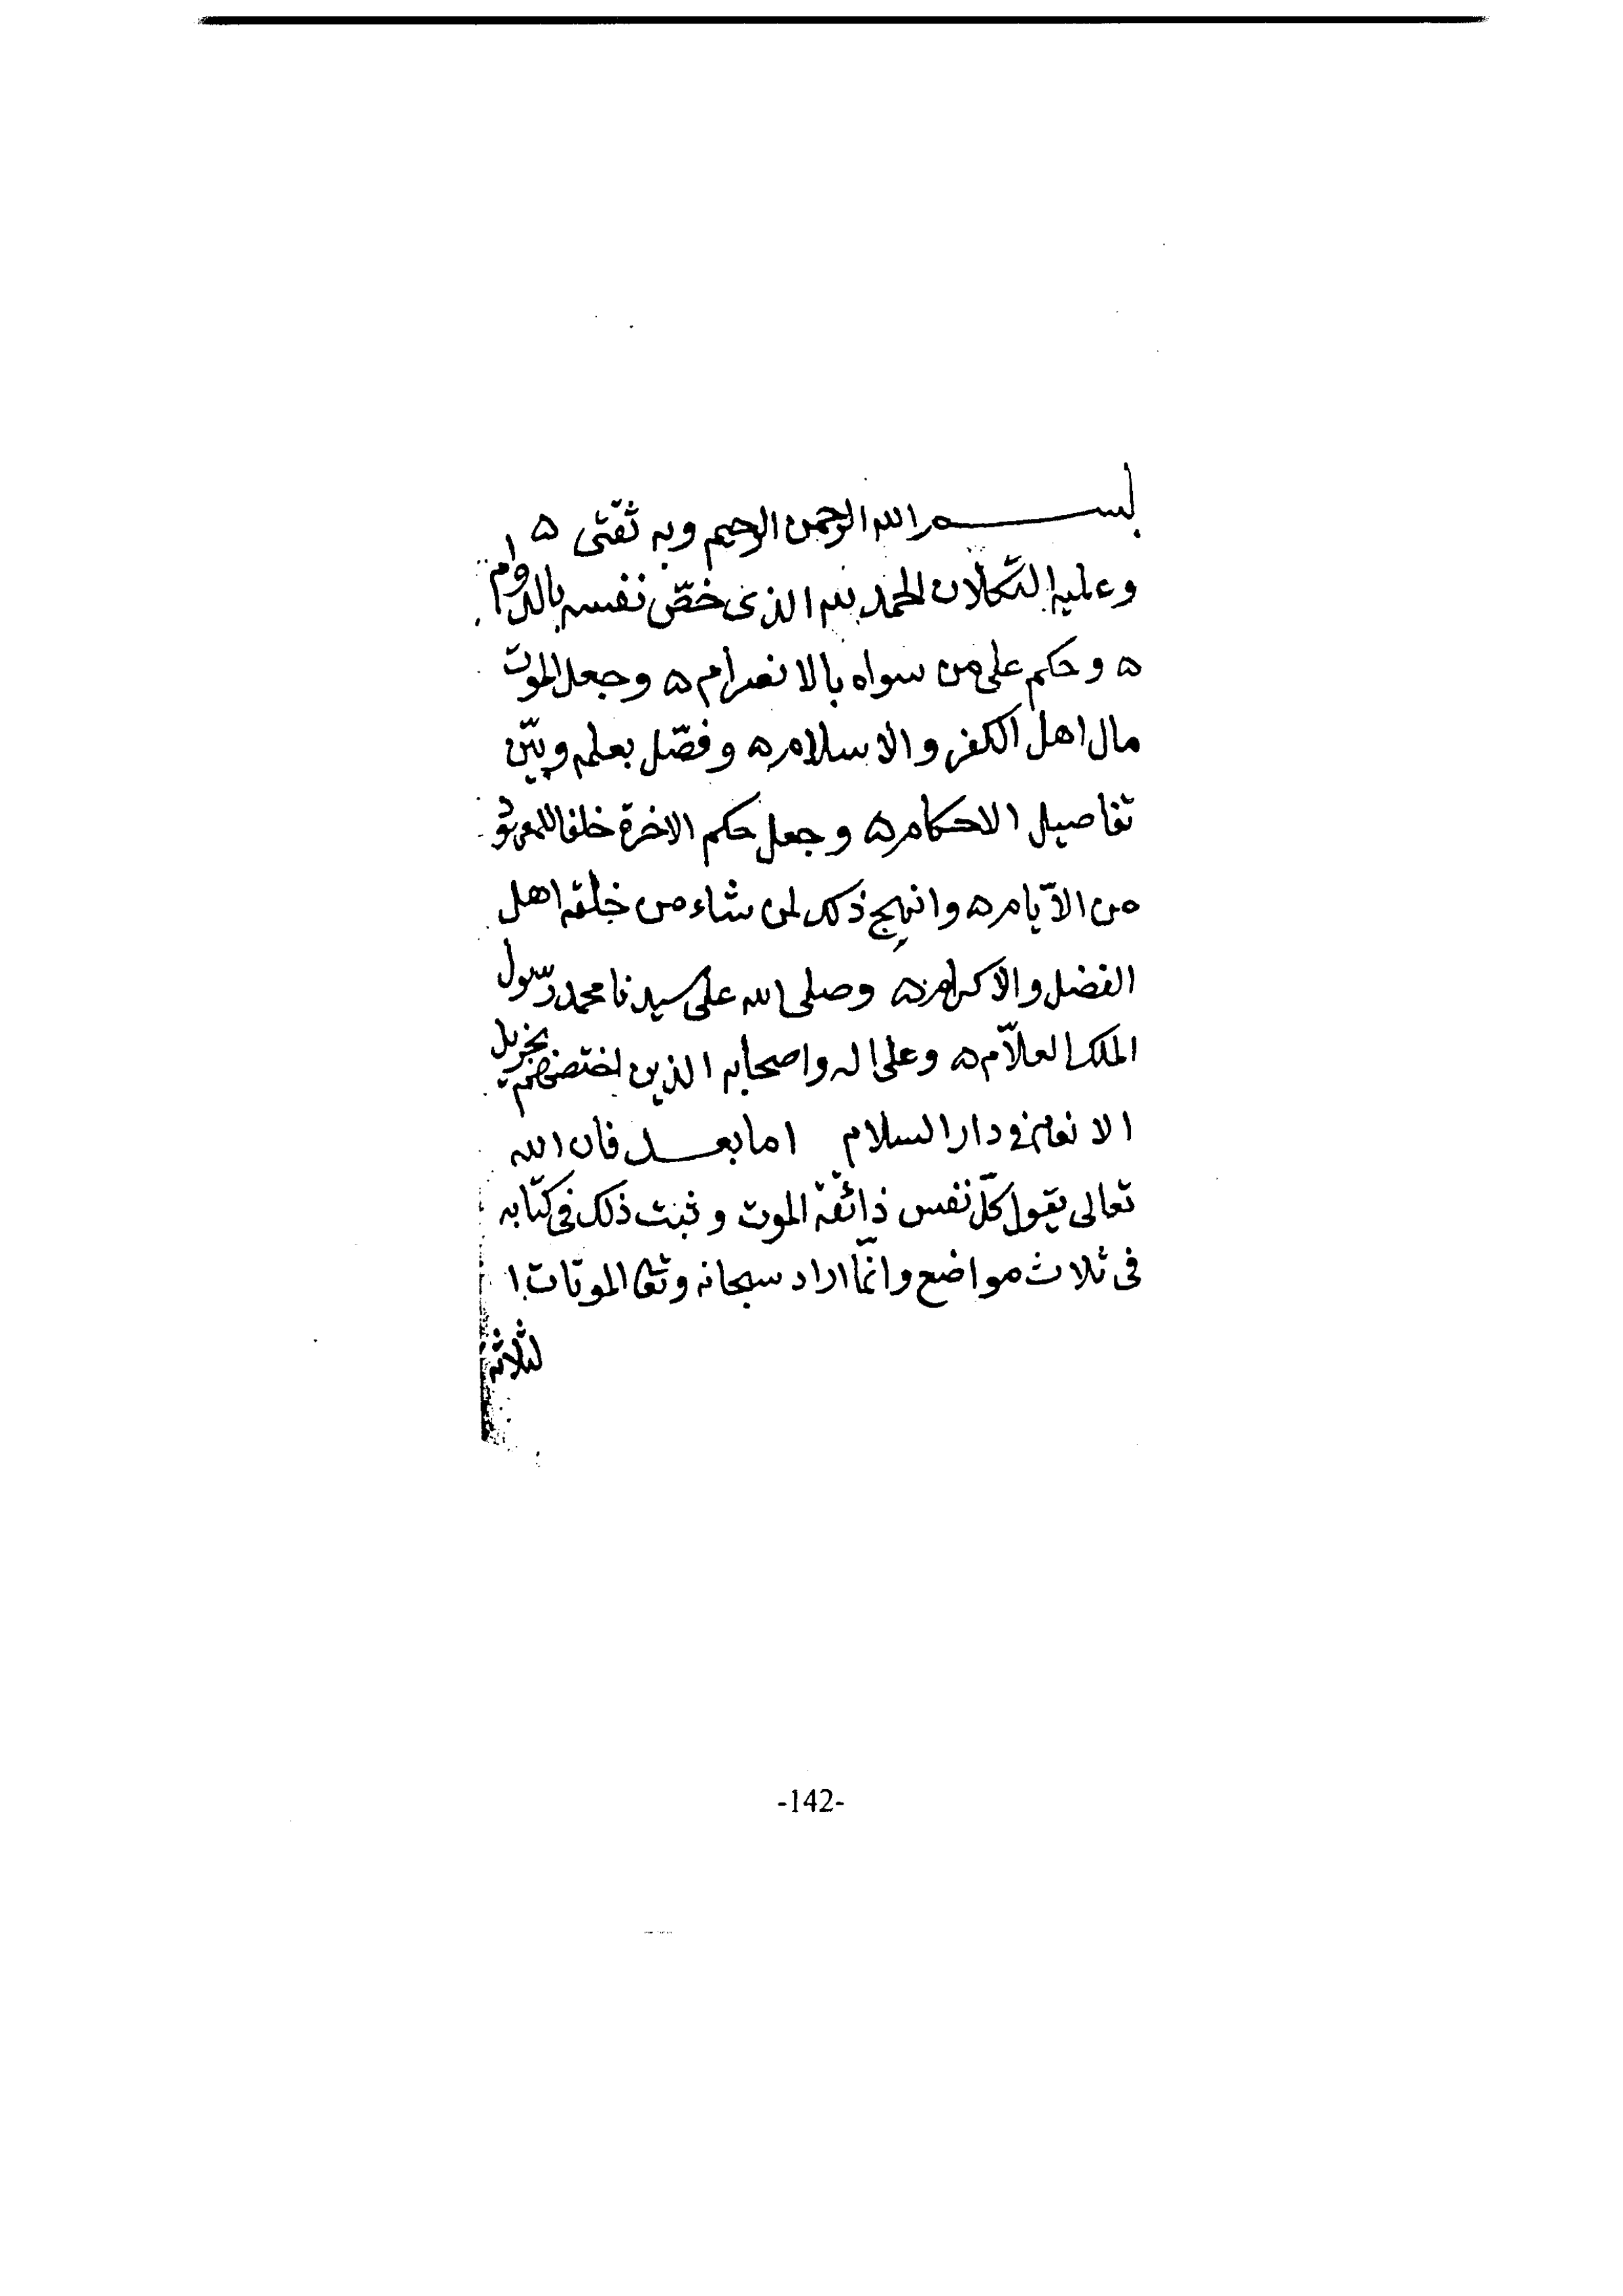 بسم الله الرحمن الرحيم وبه ثقتى ه
وعليه التكلان الحمد لله الذى خصّ نفسه بالدوام
ه وحكم على من سواه بالانصرام ه وجعل الموت
مال اهل الكفر والاسلام ه وفصّل بعلمه وبيّن
تفاصيل الاحكام ه وجعل حكم الاخرة خلفا
من الايّام ه وانهج ذلك لمن شاء من خلقه اهل
الفضل والاكرام ه وصلى الله على سيدنا محمد رسول
الملك العلاّم ه وعلى اله واصحابه الذين اختصهم بجزيل
الانعام فى دار السلام اما بعد فان الله
تعالى يقول كلّ نفس ذائقة الموت وثبت ذلك فى كتابه
فى ثلاث مواضع وانمّا اراد سبحانه وتعا الموتات ا
لثلاثة
-142-